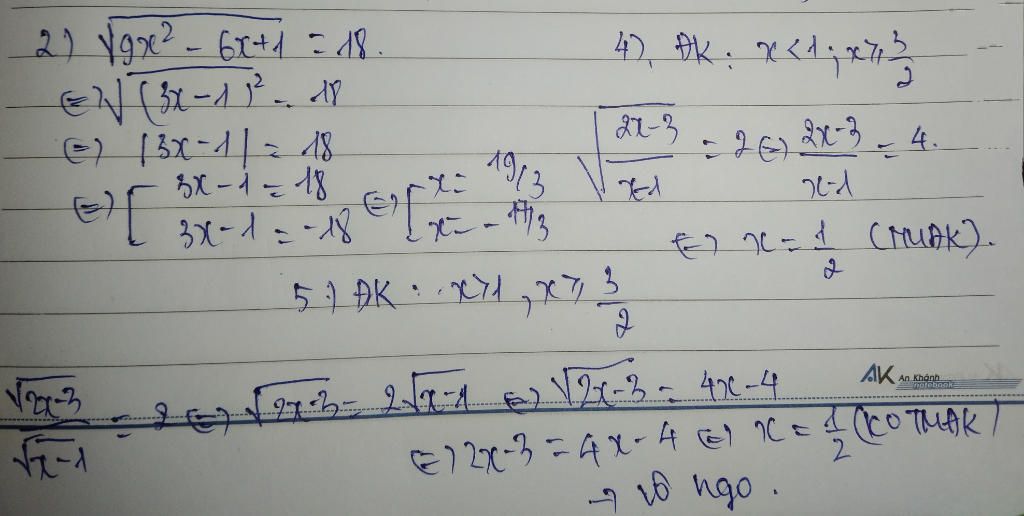 2) √(9x² - 6x+1) = 18.
⇔ √((3x-1)²) = 18
⇔ |3x-1| = 18
⇔ [ 3x-1 = 18 ; 3x-1 = -18 ⇔ [ x = 19/3 ; x = -17/3
4). ĐK: x<1; x⩾ 3/2
√((2x-3)/(x-1)) = 2 ⇔ (2x-3)/(x-1) = 4.
⇔ x = 1/2 (TMĐK).
5) ĐK: x>1, x⩾ 3/2
√(2x-3)/√(x-1) = 2 ⇔ √(2x-3) = 2√(x-1) ⇔ √(2x-3) = 4x-4
⇔ 2x-3 = 4x-4 ⇔ x = 1/2 (KO TMĐK)
→ Vô ngo.
AK An Khánh
notebook